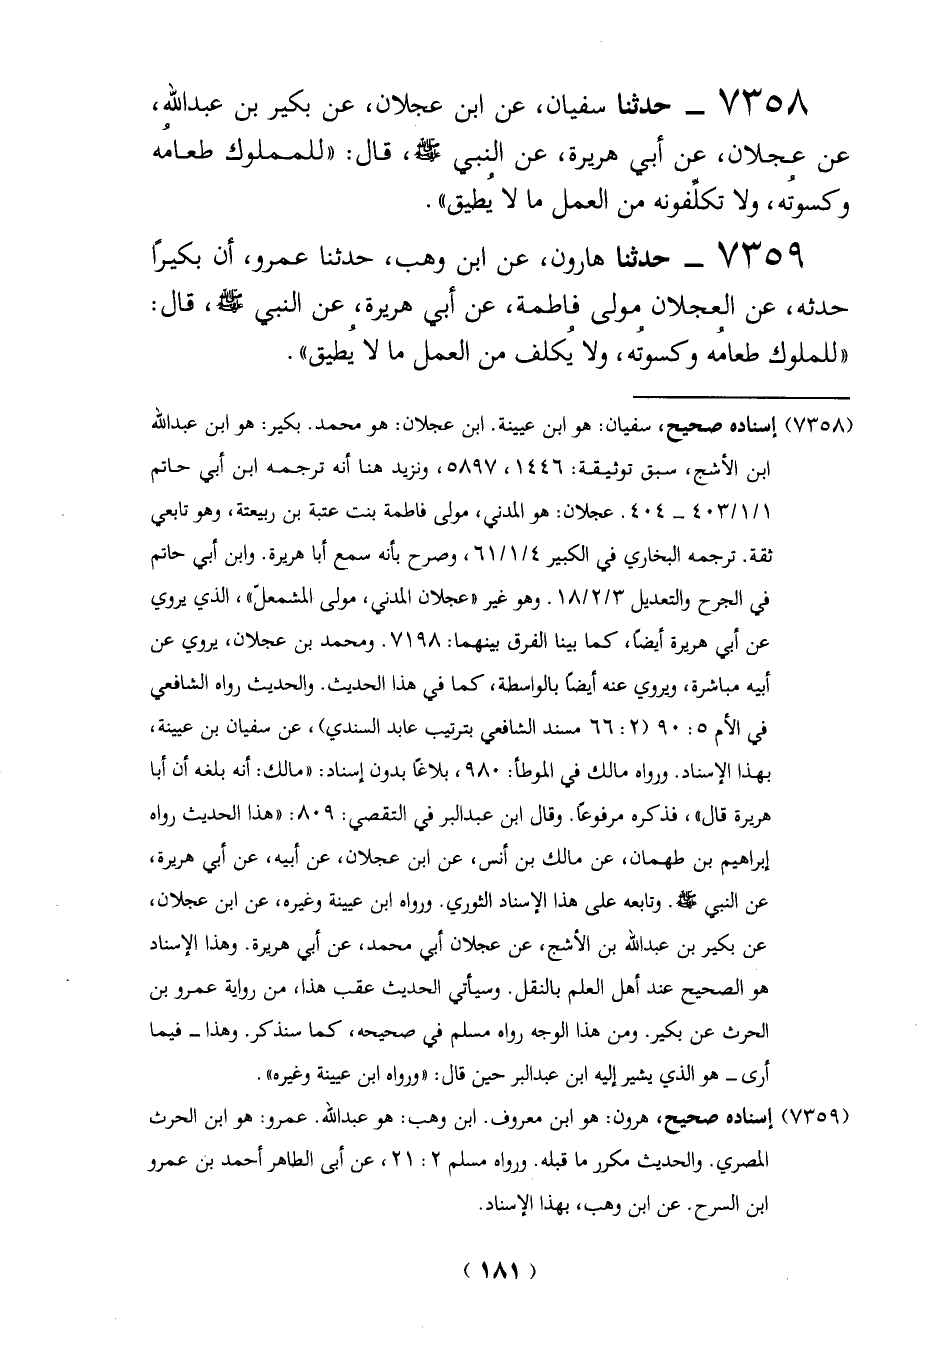 ٧٣٥٨ ــ حدثنا سفيان، عن ابن عجلان، عن بكير بن عبدالله،
عن عجلان، عن أبي هريرة، عن النبي ﷺ، قال: «للمملوك طعامُه
وكسوتُه، ولا تكلِّفونه من العمل ما لا يُطيق».
٧٣٥٩ ــ حدثنا هارون، عن ابن وهب، حدثنا عمرو، أن بكيرًا
حدثه، عن العجلان مولى فاطمة، عن أبي هريرة، عن النبي ﷺ، قال:
«للملوك طعامُه وكسوتُه، ولا يُكلف من العمل ما لا يُطيق».
(٧٣٥٨) إسناده صحيح، سفيان: هو ابن عيينة. ابن عجلان: هو محمد. بكير: هو ابن عبدالله
ابن الأشج، سبق توثيقة: ١٤٤٦، ٥٨٩٧، ونزيد هنا أنه ترجمه ابن أبي حاتم
٤٠٣/١/١ ــ ٤٠٤. عجلان: هو المدني، مولى فاطمة بنت عتبة بن ربيعتة، وهو تابعي
ثقة. ترجمه البخاري في الكبير ٦١/١/٤، وصرح بأنه سمع أبا هريرة. وابن أبي حاتم
في الجرح والتعديل ١٨/٢/٣. وهو غير «عجلان المدني، مولى المشمعلّ»، الذي يروي
عن أبي هريرة أيضًا، كما بينا الفرق بينهما: ٧١٩٨. ومحمد بن عجلان، يروي عن
أبيه مباشرة، ويروي عنه أيضًا بالواسطة، كما في هذا الحديث. والحديث رواه الشافعي
في الأم ٥: ٩٠ (٢: ٦٦ مسند الشافعي بترتيب عابد السندي)، عن سفيان بن عيينة،
بهذا الإسناد. ورواه مالك في الموطأ: ٩٨٠، بلاغًا بدون إسناد: «مالك: أنه بلغه أن أبا
هريرة قال»، فذكره مرفوعًا. وقال ابن عبدالبر في التقصي: ٨٠٩: «هذا الحديث رواه
إبراهيم بن طهمان، عن مالك بن أنس، عن ابن عجلان، عن أبيه، عن أبي هريرة،
عن النبي ﷺ. وتابعه على هذا الإسناد الثوري. ورواه ابن عيينة وغيره، عن ابن عجلان،
عن بكير بن عبدالله بن الأشج، عن عجلان أبي محمد، عن أبي هريرة. وهذا الإسناد
هو الصحيح عند أهل العلم بالنقل. وسيأتي الحديث عقب هذا، من رواية عمرو بن
الحرث عن بكير. ومن هذا الوجه رواه مسلم في صحيحه، كما سنذكر. وهذا ــ فيما
أرى ــ هو الذي يشير إليه ابن عبدالبر حين قال: «ورواه ابن عيينة وغيره».
(٧٣٥٩) إسناده صحيح، هرون: هو ابن معروف. ابن وهب: هو عبدالله. عمرو: هو ابن الحرث
المصري. والحديث مكرر ما قبله. ورواه مسلم ٢: ٢١، عن أبى الطاهر أحمد بن عمرو
ابن السرح. عن ابن وهب، بهذا الإسناد.
(١٨١)